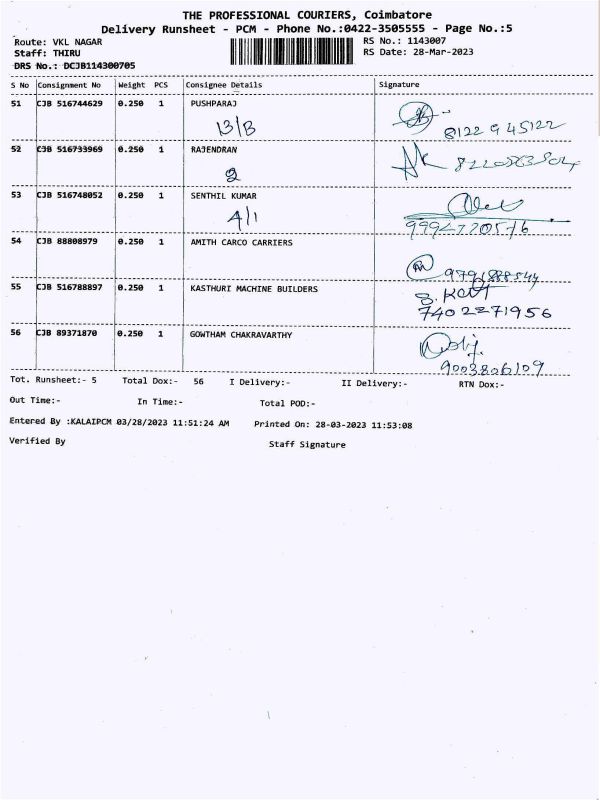 THE PROFESSIONAL COURIERS, Coimbatore
Delivery Runsheet - PCM - Phone No.:0422-3505555 - Page No.:5
Route: VKL NAGAR RS No.: 1143007
Staff: THIRU RS Date: 28-Mar-2023
DRS No.: DCJB114300705
S No Consignment No Weight PCS Consignee Details Signature
51 CJB 516744629 0.250 1 PUSHPARAJ
13/B 8122945122
52 CJB 516733969 0.250 1 RAJENDRAN
2
53 CJB 516748052 0.250 1 SENTHIL KUMAR
4/1
54 CJB 88808979 0.250 1 AMITH CARCO CARRIERS
55 CJB 516788897 0.250 1 KASTHURI MACHINE BUILDERS
7402271956
56 CJB 89371870 0.250 1 GOWTHAM CHAKRAVARTHY
9003806109
Tot. Runsheet:- 5 Total Dox:- 56 I Delivery:- II Delivery:- RTN Dox:-
Out Time:- In Time:- Total POD:-
Entered By :KALAIPCM 03/28/2023 11:51:24 AM Printed On: 28-03-2023 11:53:08
Verified By Staff Signature